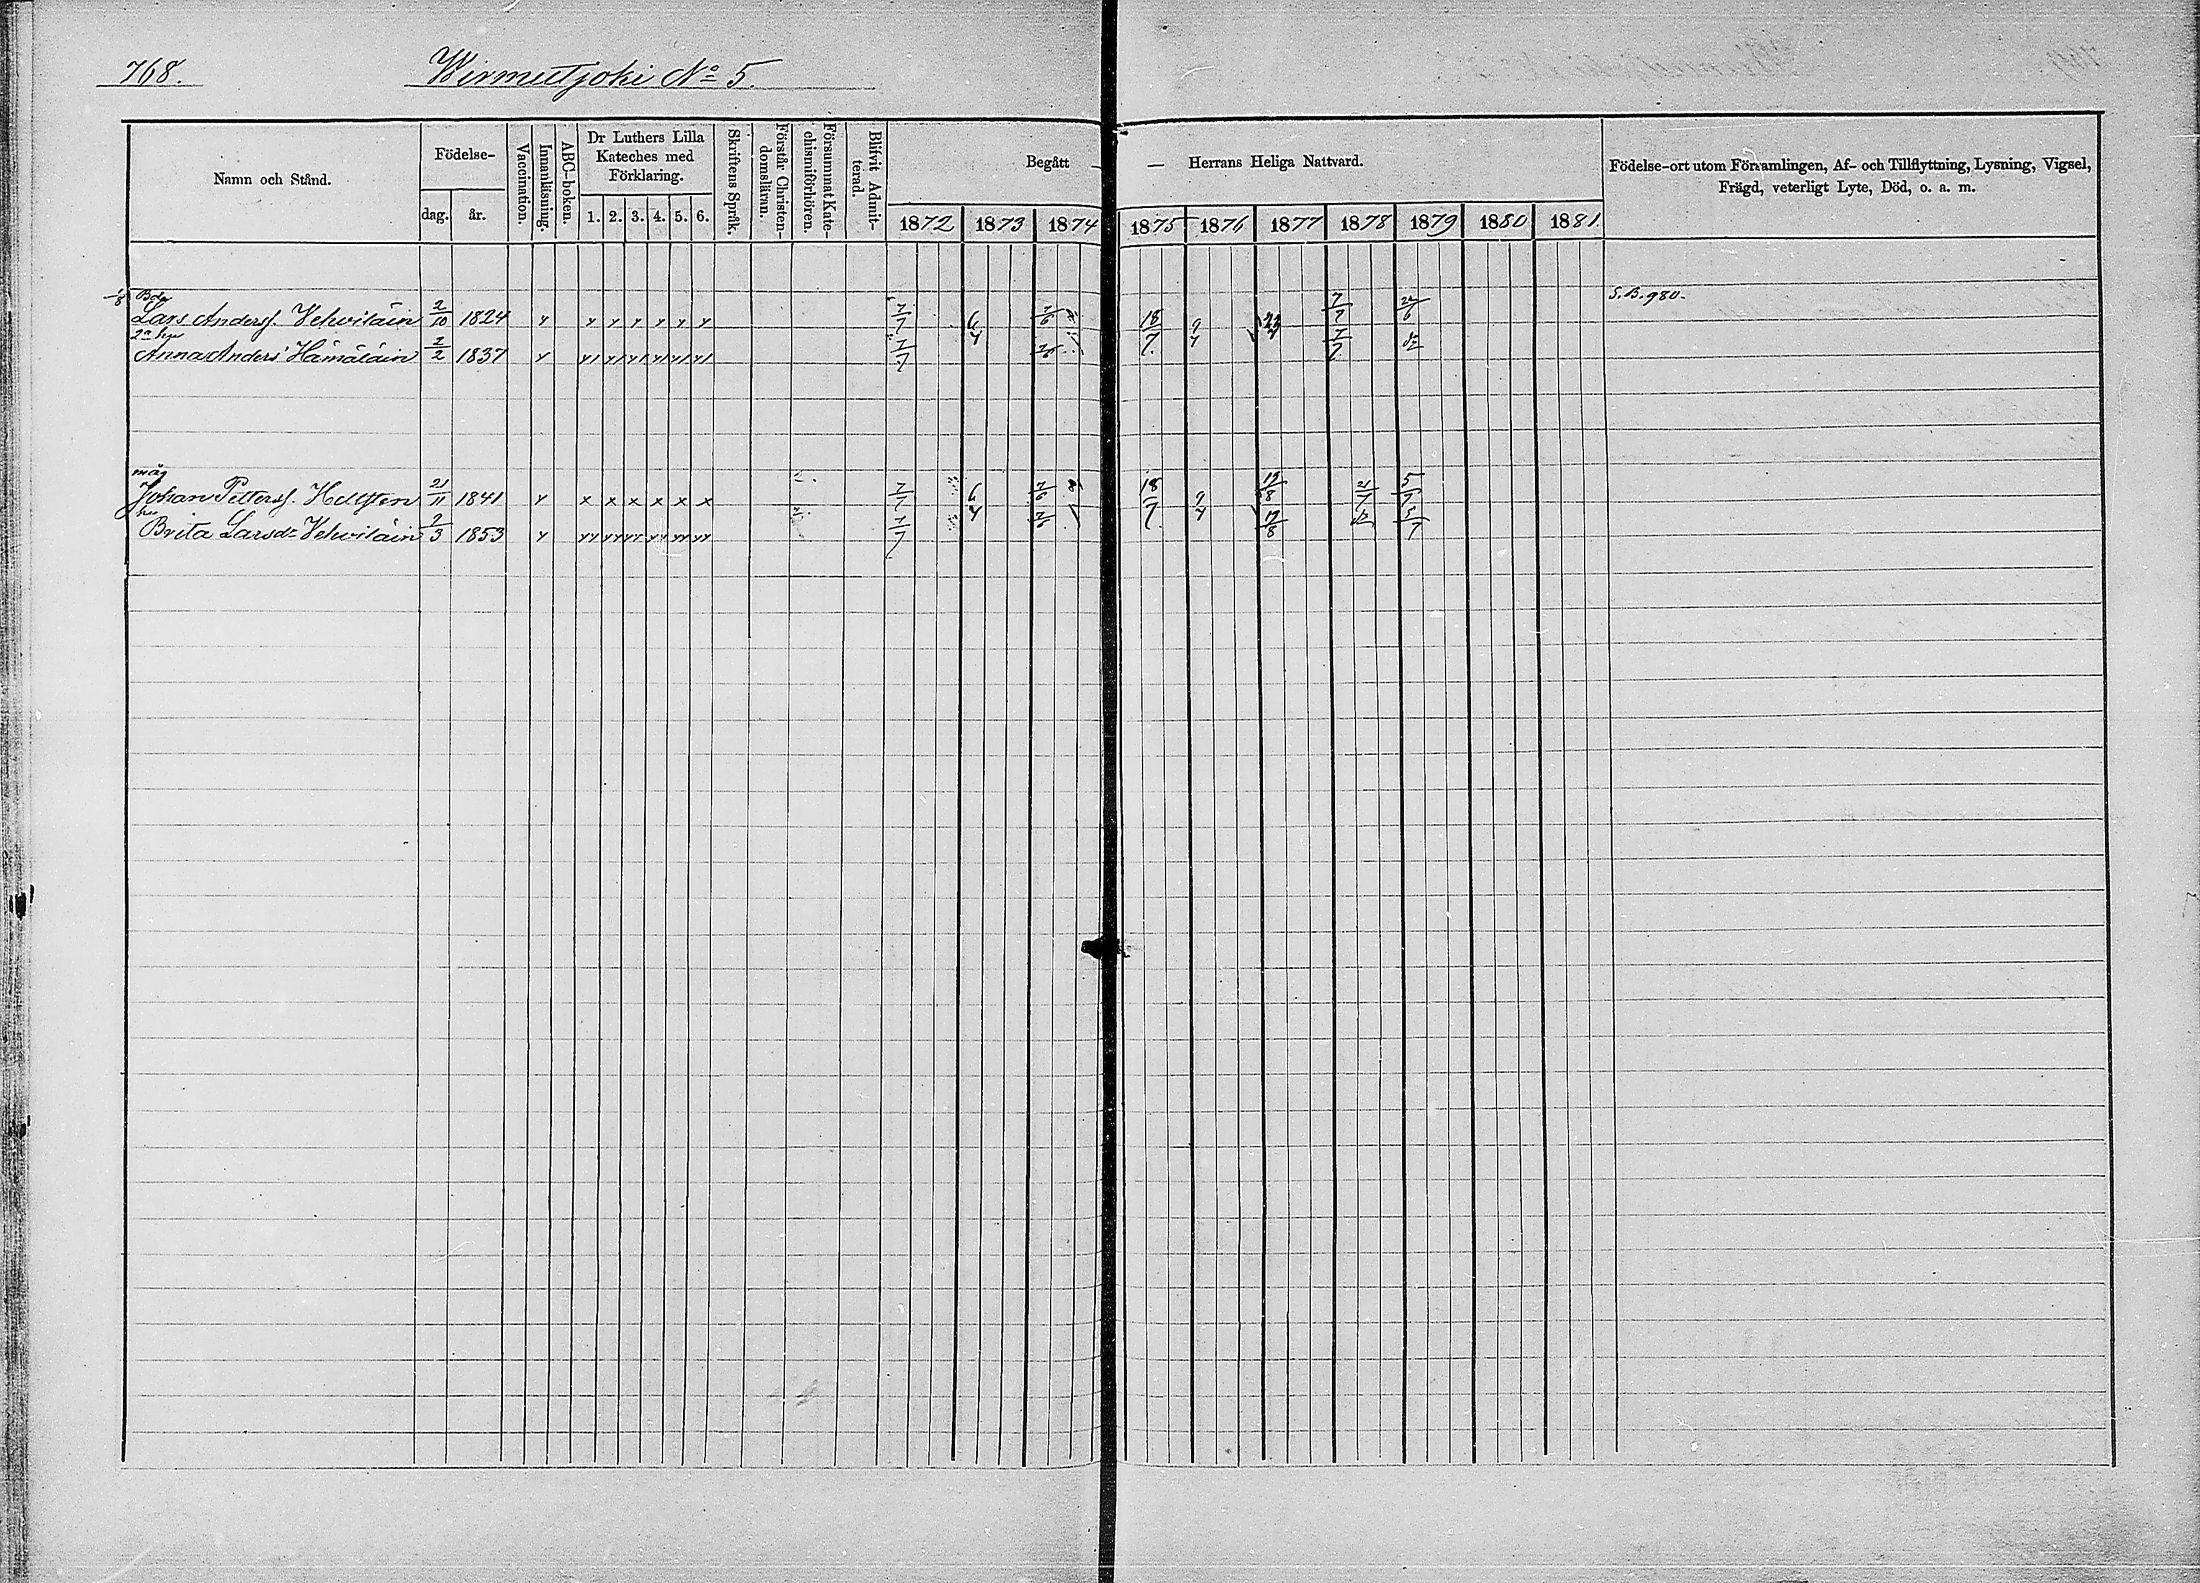 768.
Wirmutjoki No 5.
Namn och Stånd.
Födelse-
dag. år.
Vaccination.
Innanläsning.
ABC-boken.
Dr Luthers Lilla Kateches med Förklaring.
1. 2. 3. 4. 5. 6.
Skriftens Språk.
Förstår Christen-domsläran.
Försummat Kate-chismiförhören.
Blifvit Admit-terad.
Begått — — Herrans Heliga Nattvard.
1872 1873 1874 1875 1876 1877 1878 1879 1880 1881.
Födelse-ort utom Församlingen, Af- och Tillflyttning, Lysning, Vigsel,
Frägd, veterligt Lyte, Död, o. a. m.
Bde S. B. 980.
Lars Anderss. Vehviläin 2/10 1824 7/7 6/4 7/6 18/7 9/4 7/7 22/6
2a hu
Anna Anders Hämäläin 2/2 1837 7/7 7/6 7/7 do
måg
Johan Petterss. Hellsten 21/11 1841 x x x x x x 7/7 6/4 7/6 18/7 9/4 19/8 21/7 5/7
hu
Brita Larsdr Vehviläin 2/3 1853 7/7 7/6 19/8 do 5/7